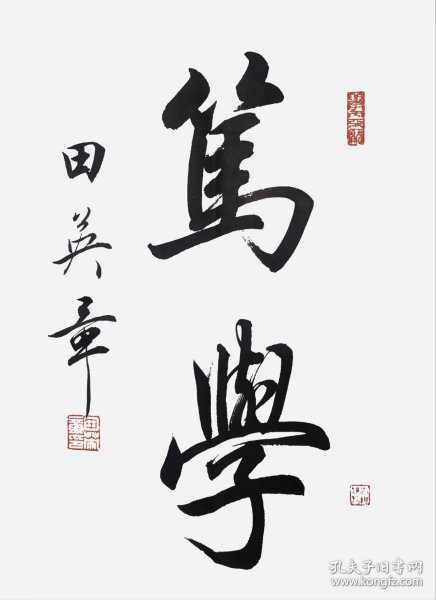 篤學
田英章
孔夫子旧书网
www.kongfz.com